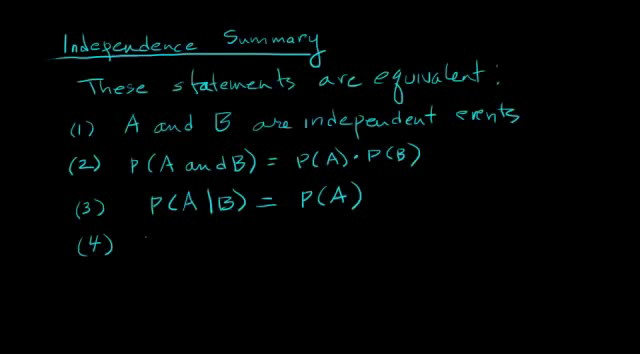 Independence Summary
These statements are equivalent:
(1) A and B are independent events
(2) P(A and B) = P(A) · P(B)
(3) P(A|B) = P(A)
(4)